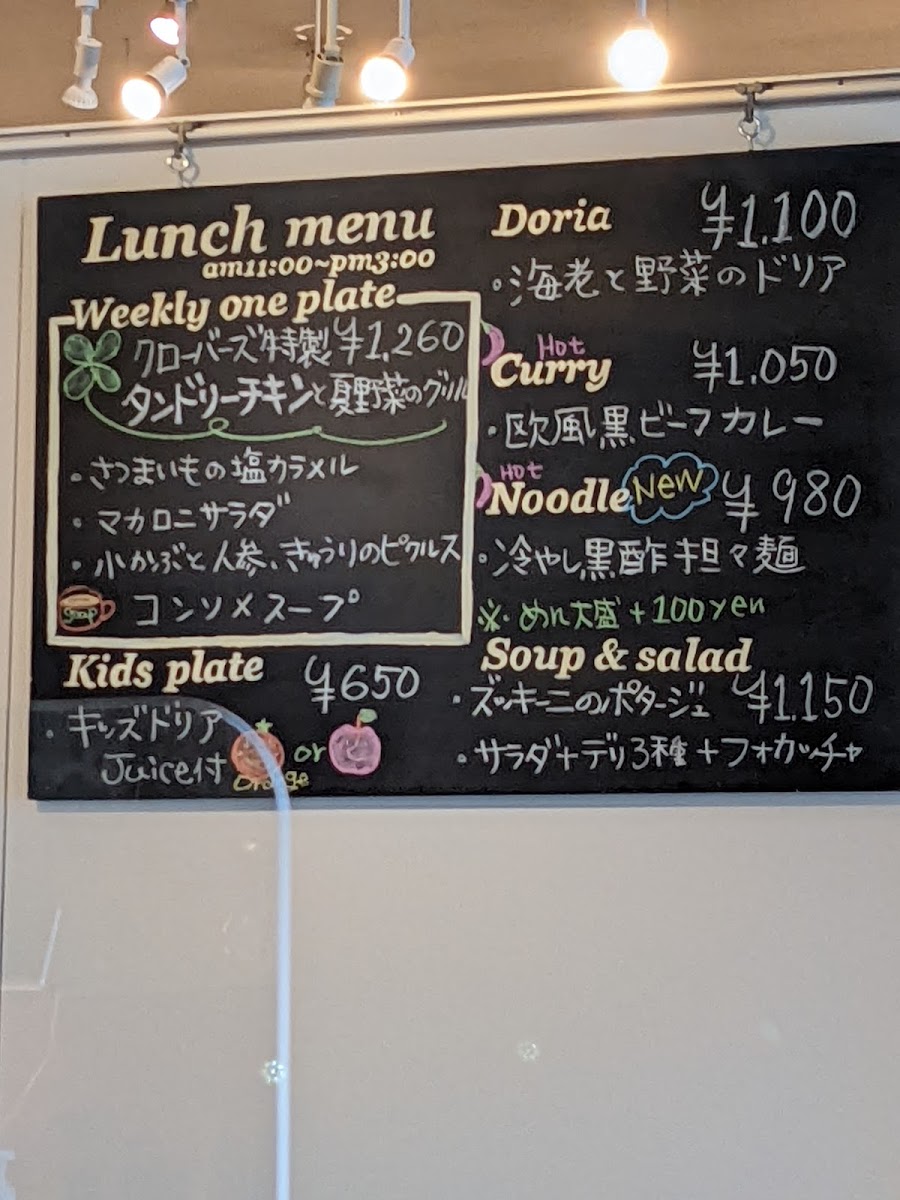 Lunch menu
am11:00~pm3:00
Weekly one plate
クローバーズ特製 ¥1,260
タンドリーチキンと夏野菜のグリル
・さつまいもの塩カラメル
・マカロニサラダ
・小かぶと人参、きゅうりのピクルス
soup コンソメスープ
Kids plate ¥650
・キッズドリア
Juice付 orange or
Doria ¥1,100
・海老と野菜のドリア
Hot
Curry ¥1.050
・欧風黒ビーフカレー
Hot
Noodle New ¥980
・冷やし黒酢担々麺
※めん大盛+100yen
Soup & salad
・ズッキーニのポタージュ ¥1.150
・サラダ+デリ3種+フォカッチャ